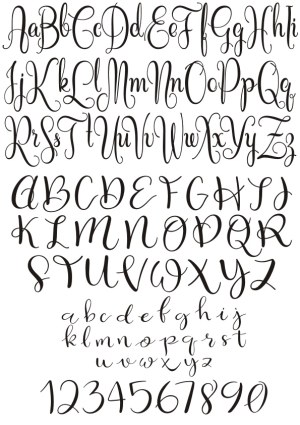 AaBbCcDdEeFfGgHhIi
JjKkLlMmNnOoPpQq
RrSsTtUuVvWwXxYyZz
ABCDEFGHIJ
KLMNOPQR
STUVWXYZ
abcdefghij
klmnopqrst
uvwxyz
1234567890